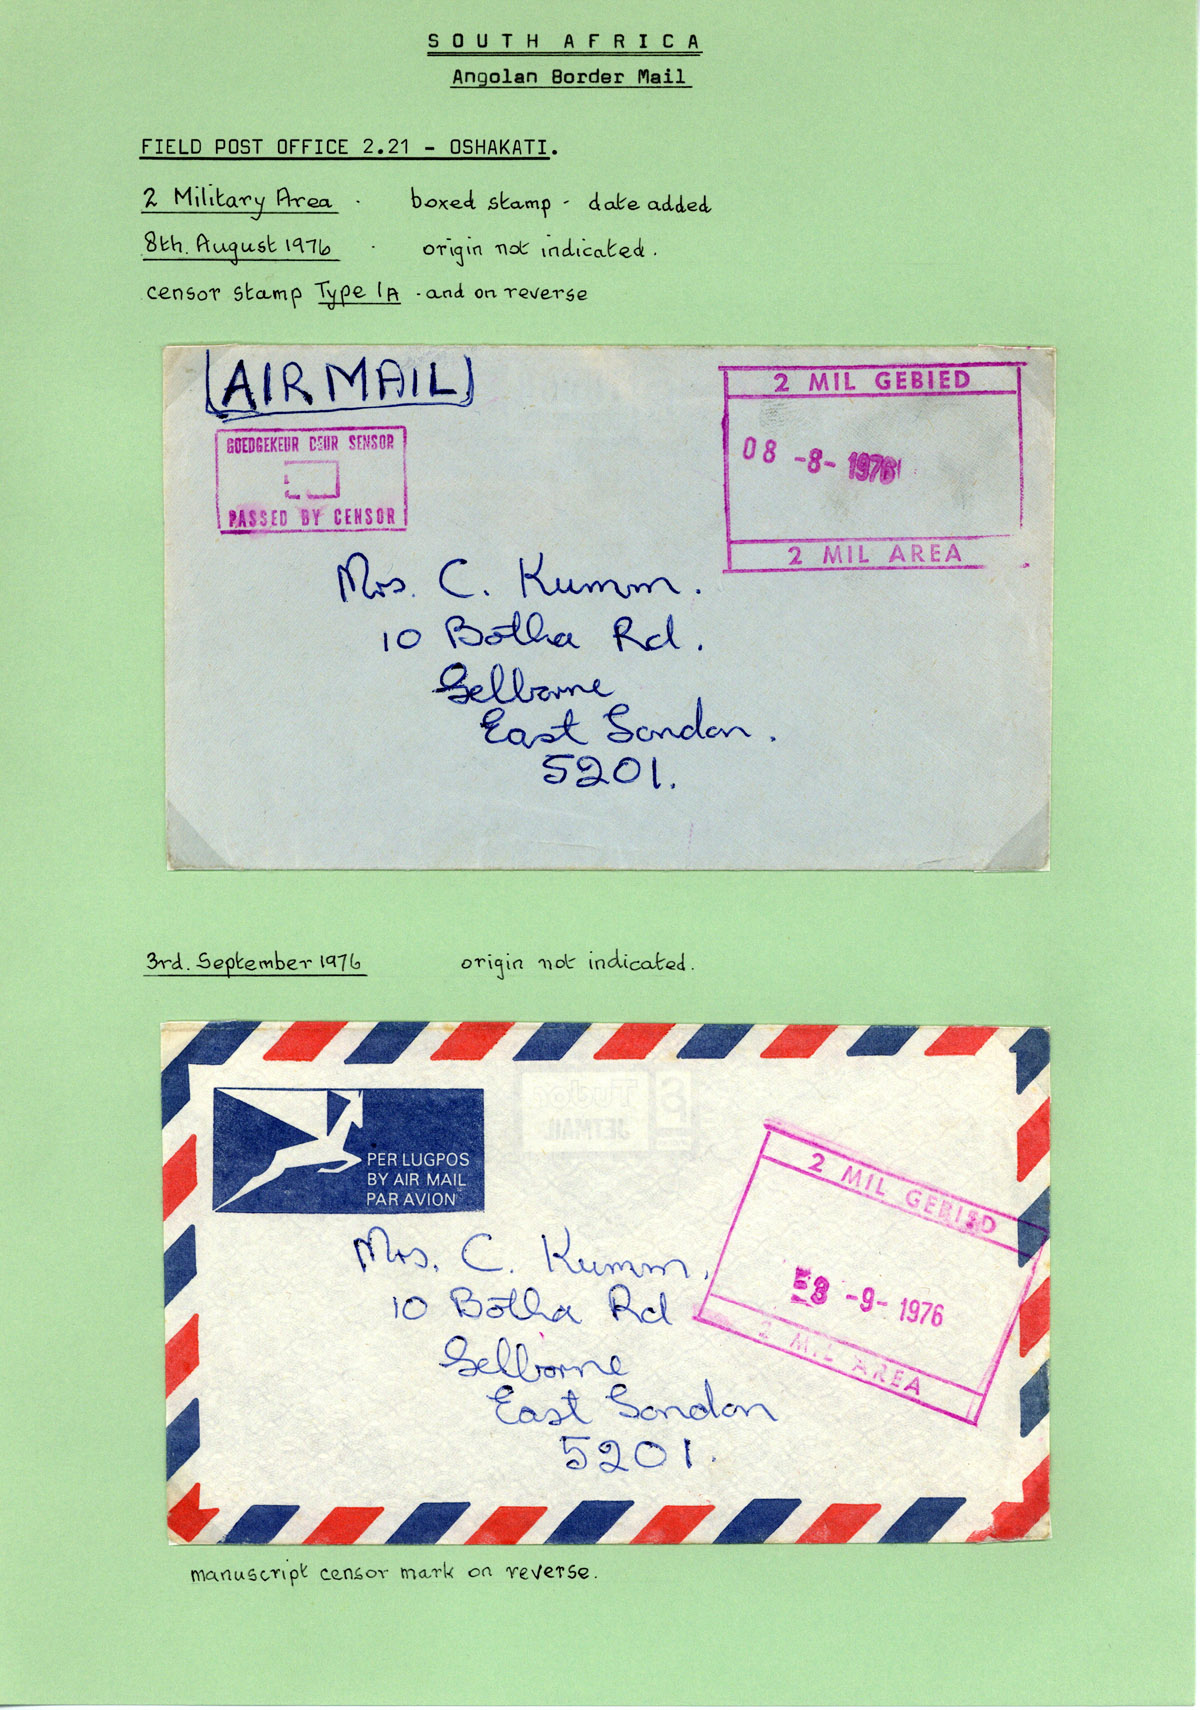 SOUTH AFRICA
Angolan Border Mail
FIELD POST OFFICE 2.21 - OSHAKATI.
2 Military Area . boxed stamp - date added
8th. August 1976 . origin not indicated.
censor stamp Type 1A . and on reverse
AIR MAIL
2 MIL GEBIED
08 -8- 1976
2 MIL AREA
GOEDGEKEUR DEUR SENSOR
PASSED BY CENSOR
Mrs. C. Kumm.
10 Botha Rd.
Selborne
East London.
5201.
3rd. September 1976 origin not indicated.
PER LUGPOS
BY AIR MAIL
PAR AVION
Tudor
JETMAIL
2 MIL GEBIED
-9- 1976
2 MIL AREA
Mrs. C. Kumm,
10 Botha Rd
Selborne
East London
5201.
manuscript censor mark on reverse.